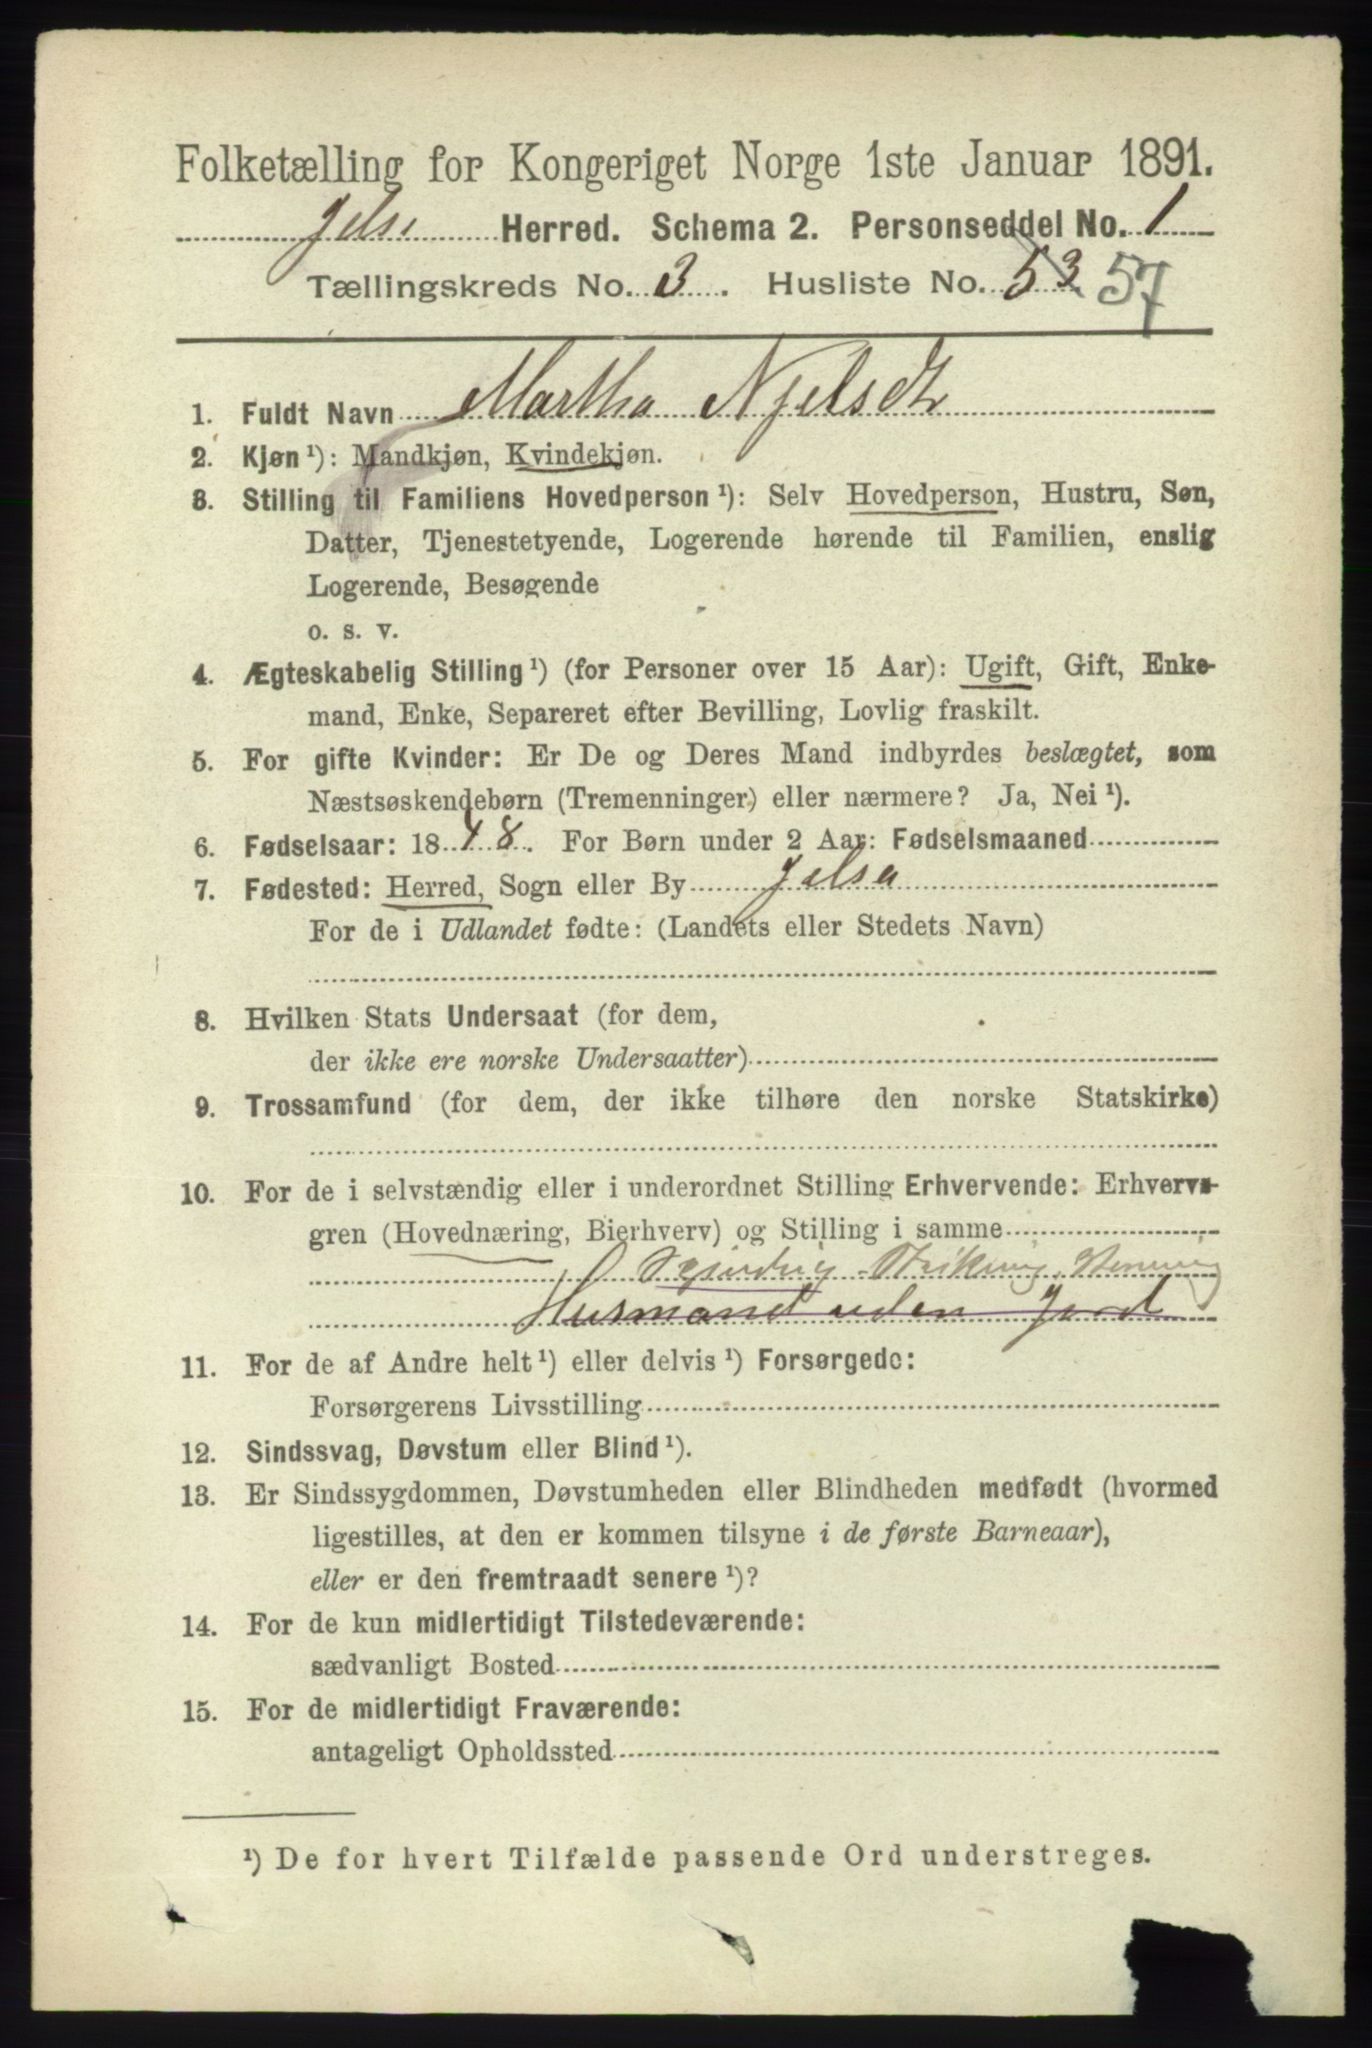 Folketælling for Kongeriget Norge 1ste Januar 1891.
Jelse Herred. Schema 2. Personseddel No. 1
Tællingskreds No. 3. Husliste No. 53 57
1. Fuldt Navn Martha Njelsdtr
2. Kjøn¹): Mandkjøn, Kvindekjøn.
3. Stilling til Familiens Hovedperson¹): Selv Hovedperson, Hustru, Søn,
Datter, Tjenestetyende, Logerende hørende til Familien, enslig
Logerende, Besøgende
o. s. v.
4. Ægteskabelig Stilling¹) (for Personer over 15 Aar): Ugift, Gift, Enke-
mand, Enke, Separeret efter Bevilling, Lovlig fraskilt.
5. For gifte Kvinder: Er De og Deres Mand indbyrdes beslægtet, som
Næstsøskendebørn (Tremenninger) eller nærmere? Ja, Nei¹).
6. Fødselsaar: 1848. For Børn under 2 Aar: Fødselsmaaned
7. Fødested: Herred, Sogn eller By Jelsa
For de i Udlandet fødte: (Landets eller Stedets Navn)
8. Hvilken Stats Undersaat (for dem,
der ikke ere norske Undersaatter)
9. Trossamfund (for dem, der ikke tilhøre den norske Statskirke)
10. For de i selvstændig eller i underordnet Stilling Erhvervende: Erhvervs-
gren (Hovednæring, Bierhverv) og Stilling i samme
Spinding Strikning
Husmand uden Jord
11. For de af Andre helt¹) eller delvis¹) Forsørgede:
Forsørgerens Livsstilling
12. Sindssvag, Døvstum eller Blind¹).
13. Er Sindssygdommen, Døvstumheden eller Blindheden medfødt (hvormed
ligestilles, at den er kommen tilsyne i de første Barneaar),
eller er den fremtraadt senere¹)?
14. For de kun midlertidigt Tilstedeværende:
sædvanligt Bosted
15. For de midlertidigt Fraværende:
antageligt Opholdssted
¹) De for hvert Tilfælde passende Ord understreges.